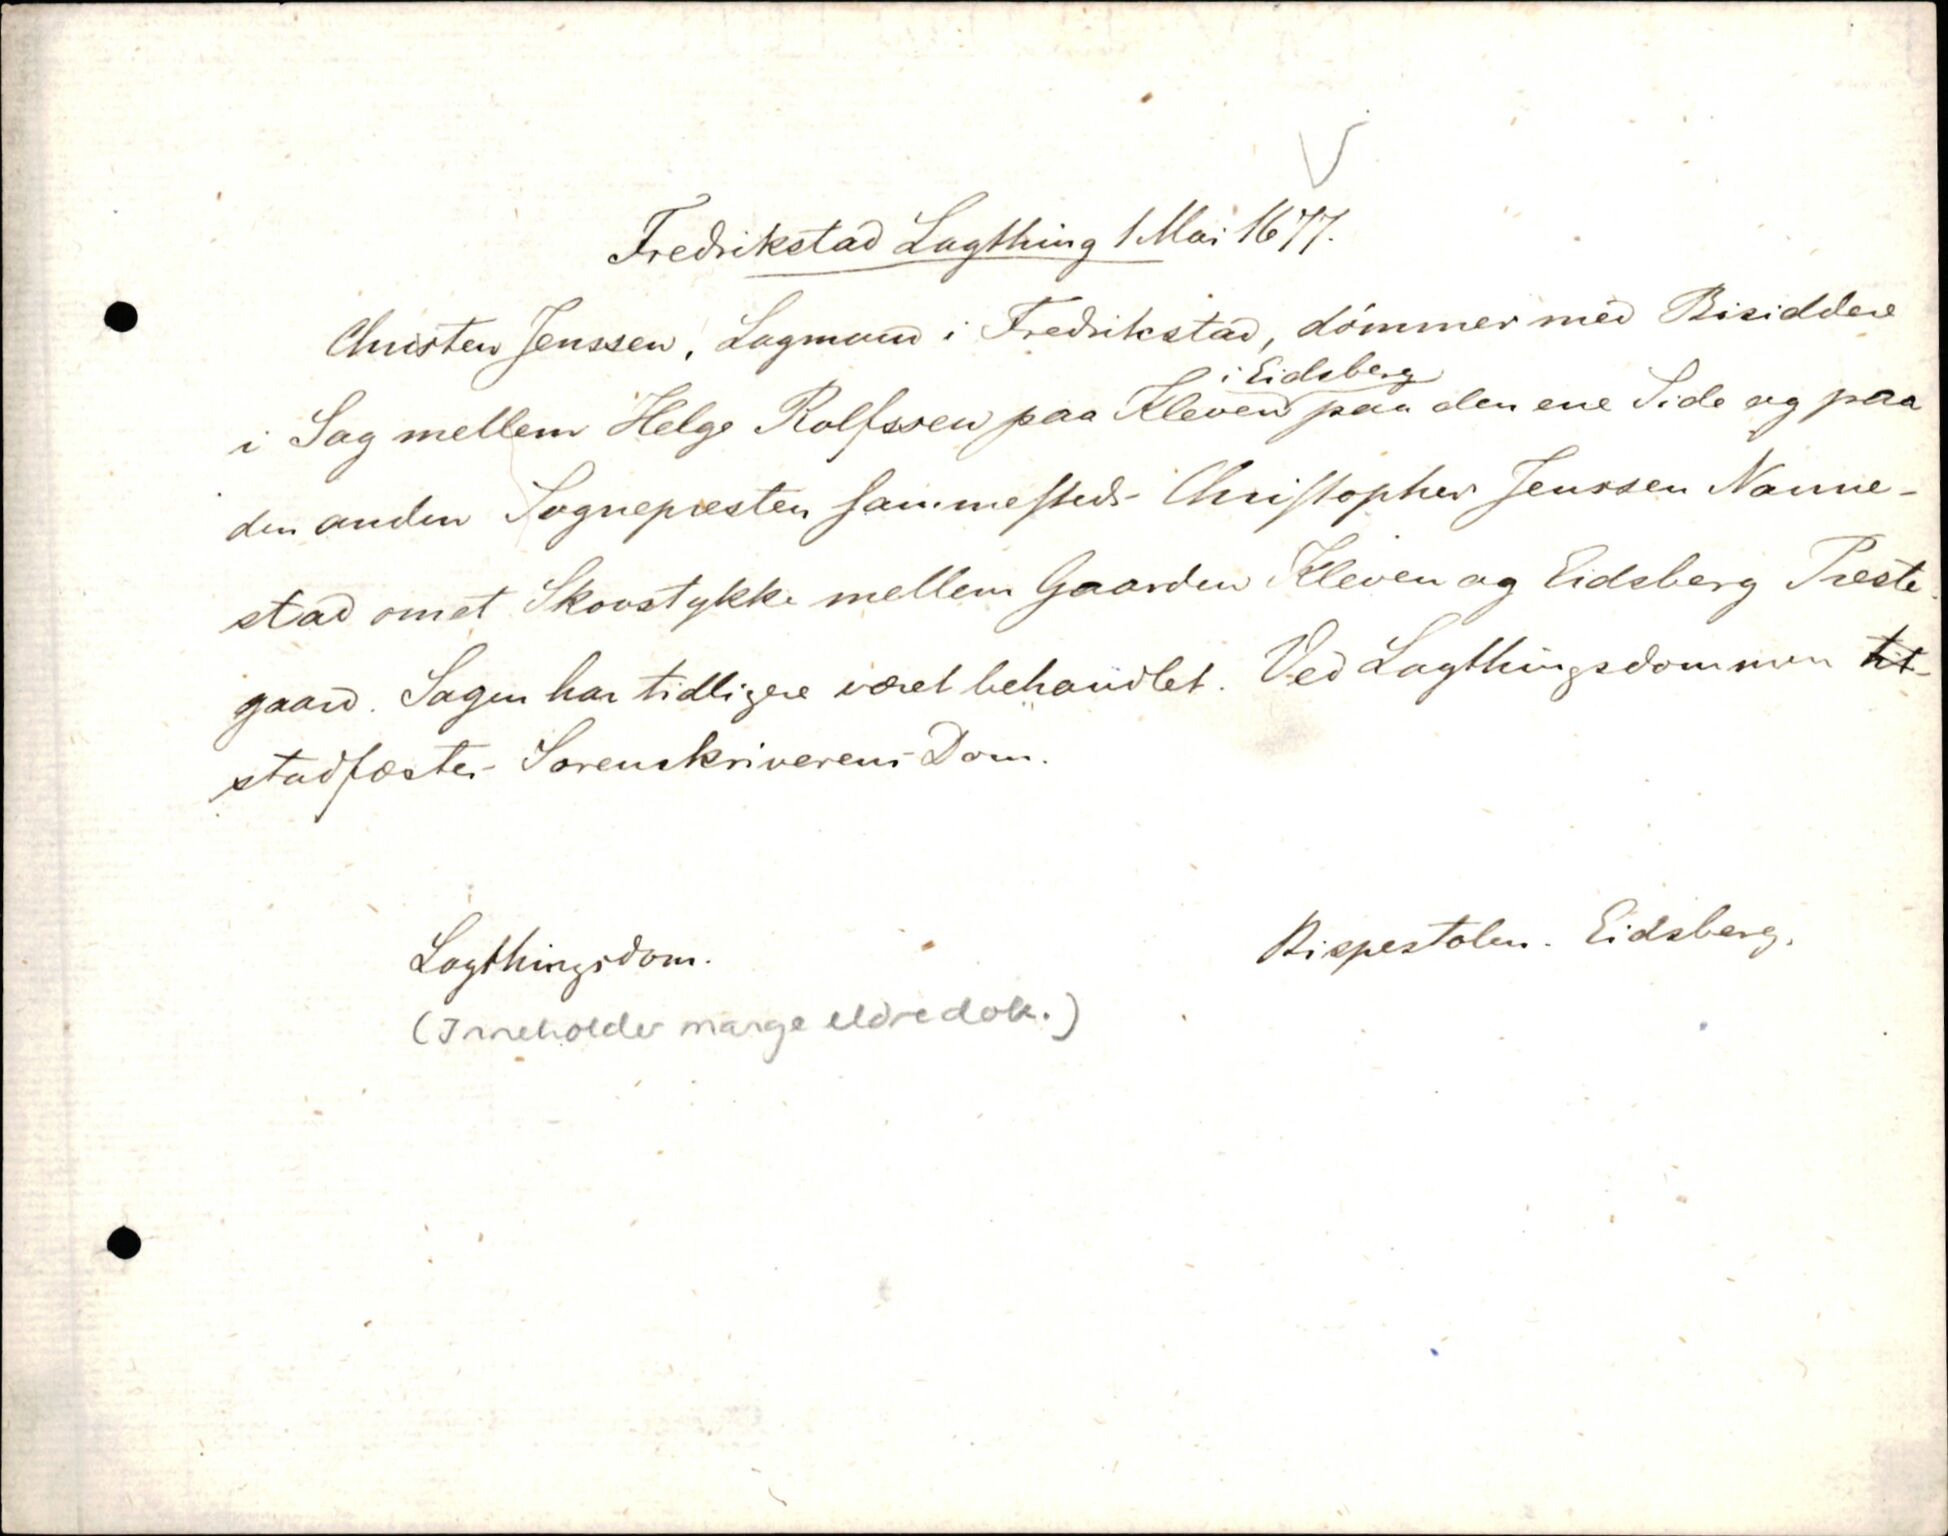 Fredrikstad Lagthing 1 Mai 1677.
Christen Jenssen, Lagmand i Fredrikstad, dömmer med Bisiddere
i Sag mellem Helge Rolfssen paa Kleven i Eidsberg paa den ene Side og paa
den anden Sognepresten sammesteds Christopher Jenssen Nanne-
stad om et Skovstykke mellem Gaarden Kleven og Eidsberg Preste-
gaard. Sagen har tidligere været behandlet. Ved Lagthingsdommen
stadfæstes Sorenskriverens Dom.
Lagthingsdom.
Bispestolen. Eidsberg.
(Inneholder mange eldre dok.)